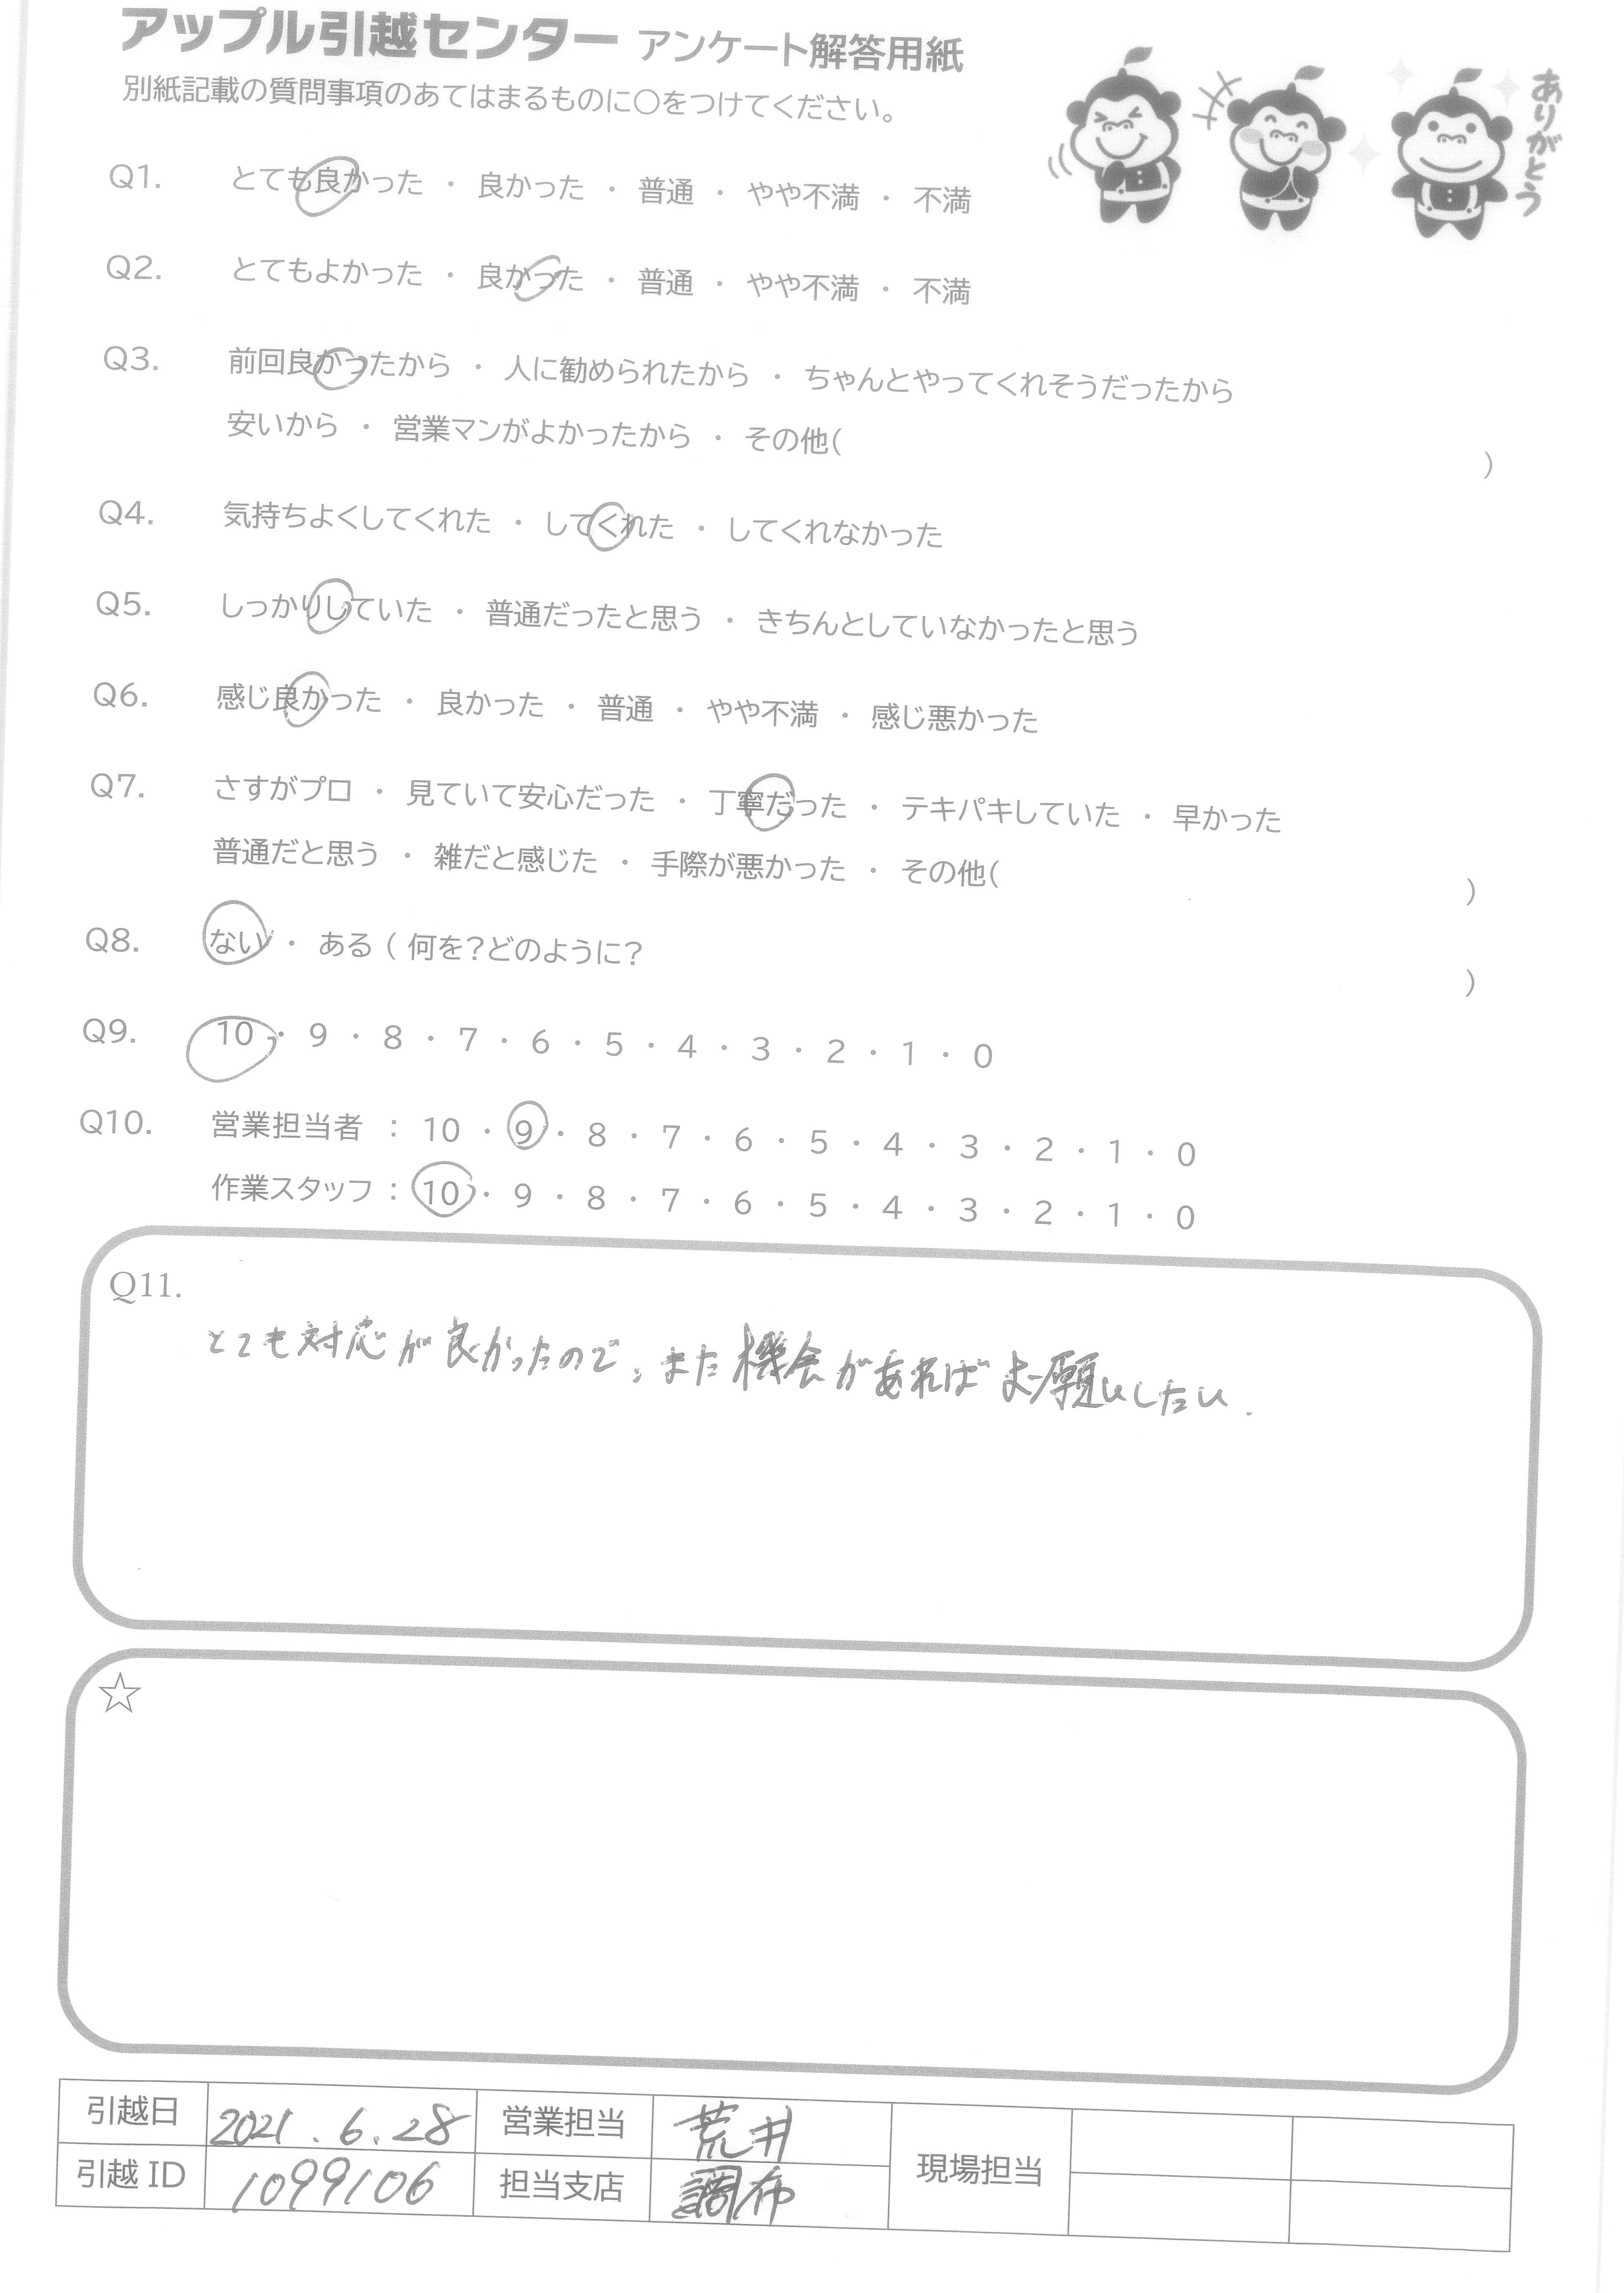 アップル引越センター アンケート解答用紙
別紙記載の質問事項のあてはまるものに○をつけてください。
ありがとう
Q1. とても良かった ・ 良かった ・ 普通 ・ やや不満 ・ 不満
Q2. とてもよかった ・ 良かった ・ 普通 ・ やや不満 ・ 不満
Q3. 前回良かったから ・ 人に勧められたから ・ ちゃんとやってくれそうだったから
安いから ・ 営業マンがよかったから ・ その他( )
Q4. 気持ちよくしてくれた ・ してくれた ・ してくれなかった
Q5. しっかりしていた ・ 普通だったと思う ・ きちんとしていなかったと思う
Q6. 感じ良かった ・ 良かった ・ 普通 ・ やや不満 ・ 感じ悪かった
Q7. さすがプロ ・ 見ていて安心だった ・ 丁寧だった ・ テキパキしていた ・ 早かった
普通だと思う ・ 雑だと感じた ・ 手際が悪かった ・ その他( )
Q8. ない ・ ある ( 何を?どのように? )
Q9. 10 ・ 9 ・ 8 ・ 7 ・ 6 ・ 5 ・ 4 ・ 3 ・ 2 ・ 1 ・ 0
Q10. 営業担当者 : 10 ・ 9 ・ 8 ・ 7 ・ 6 ・ 5 ・ 4 ・ 3 ・ 2 ・ 1 ・ 0
作業スタッフ : 10 ・ 9 ・ 8 ・ 7 ・ 6 ・ 5 ・ 4 ・ 3 ・ 2 ・ 1 ・ 0
Q11.
とても対応が良かったので、また機会があればお願いしたい.
☆
引越日 2021.6.28 営業担当 荒井 現場担当
引越 ID 1099106 担当支店 調布